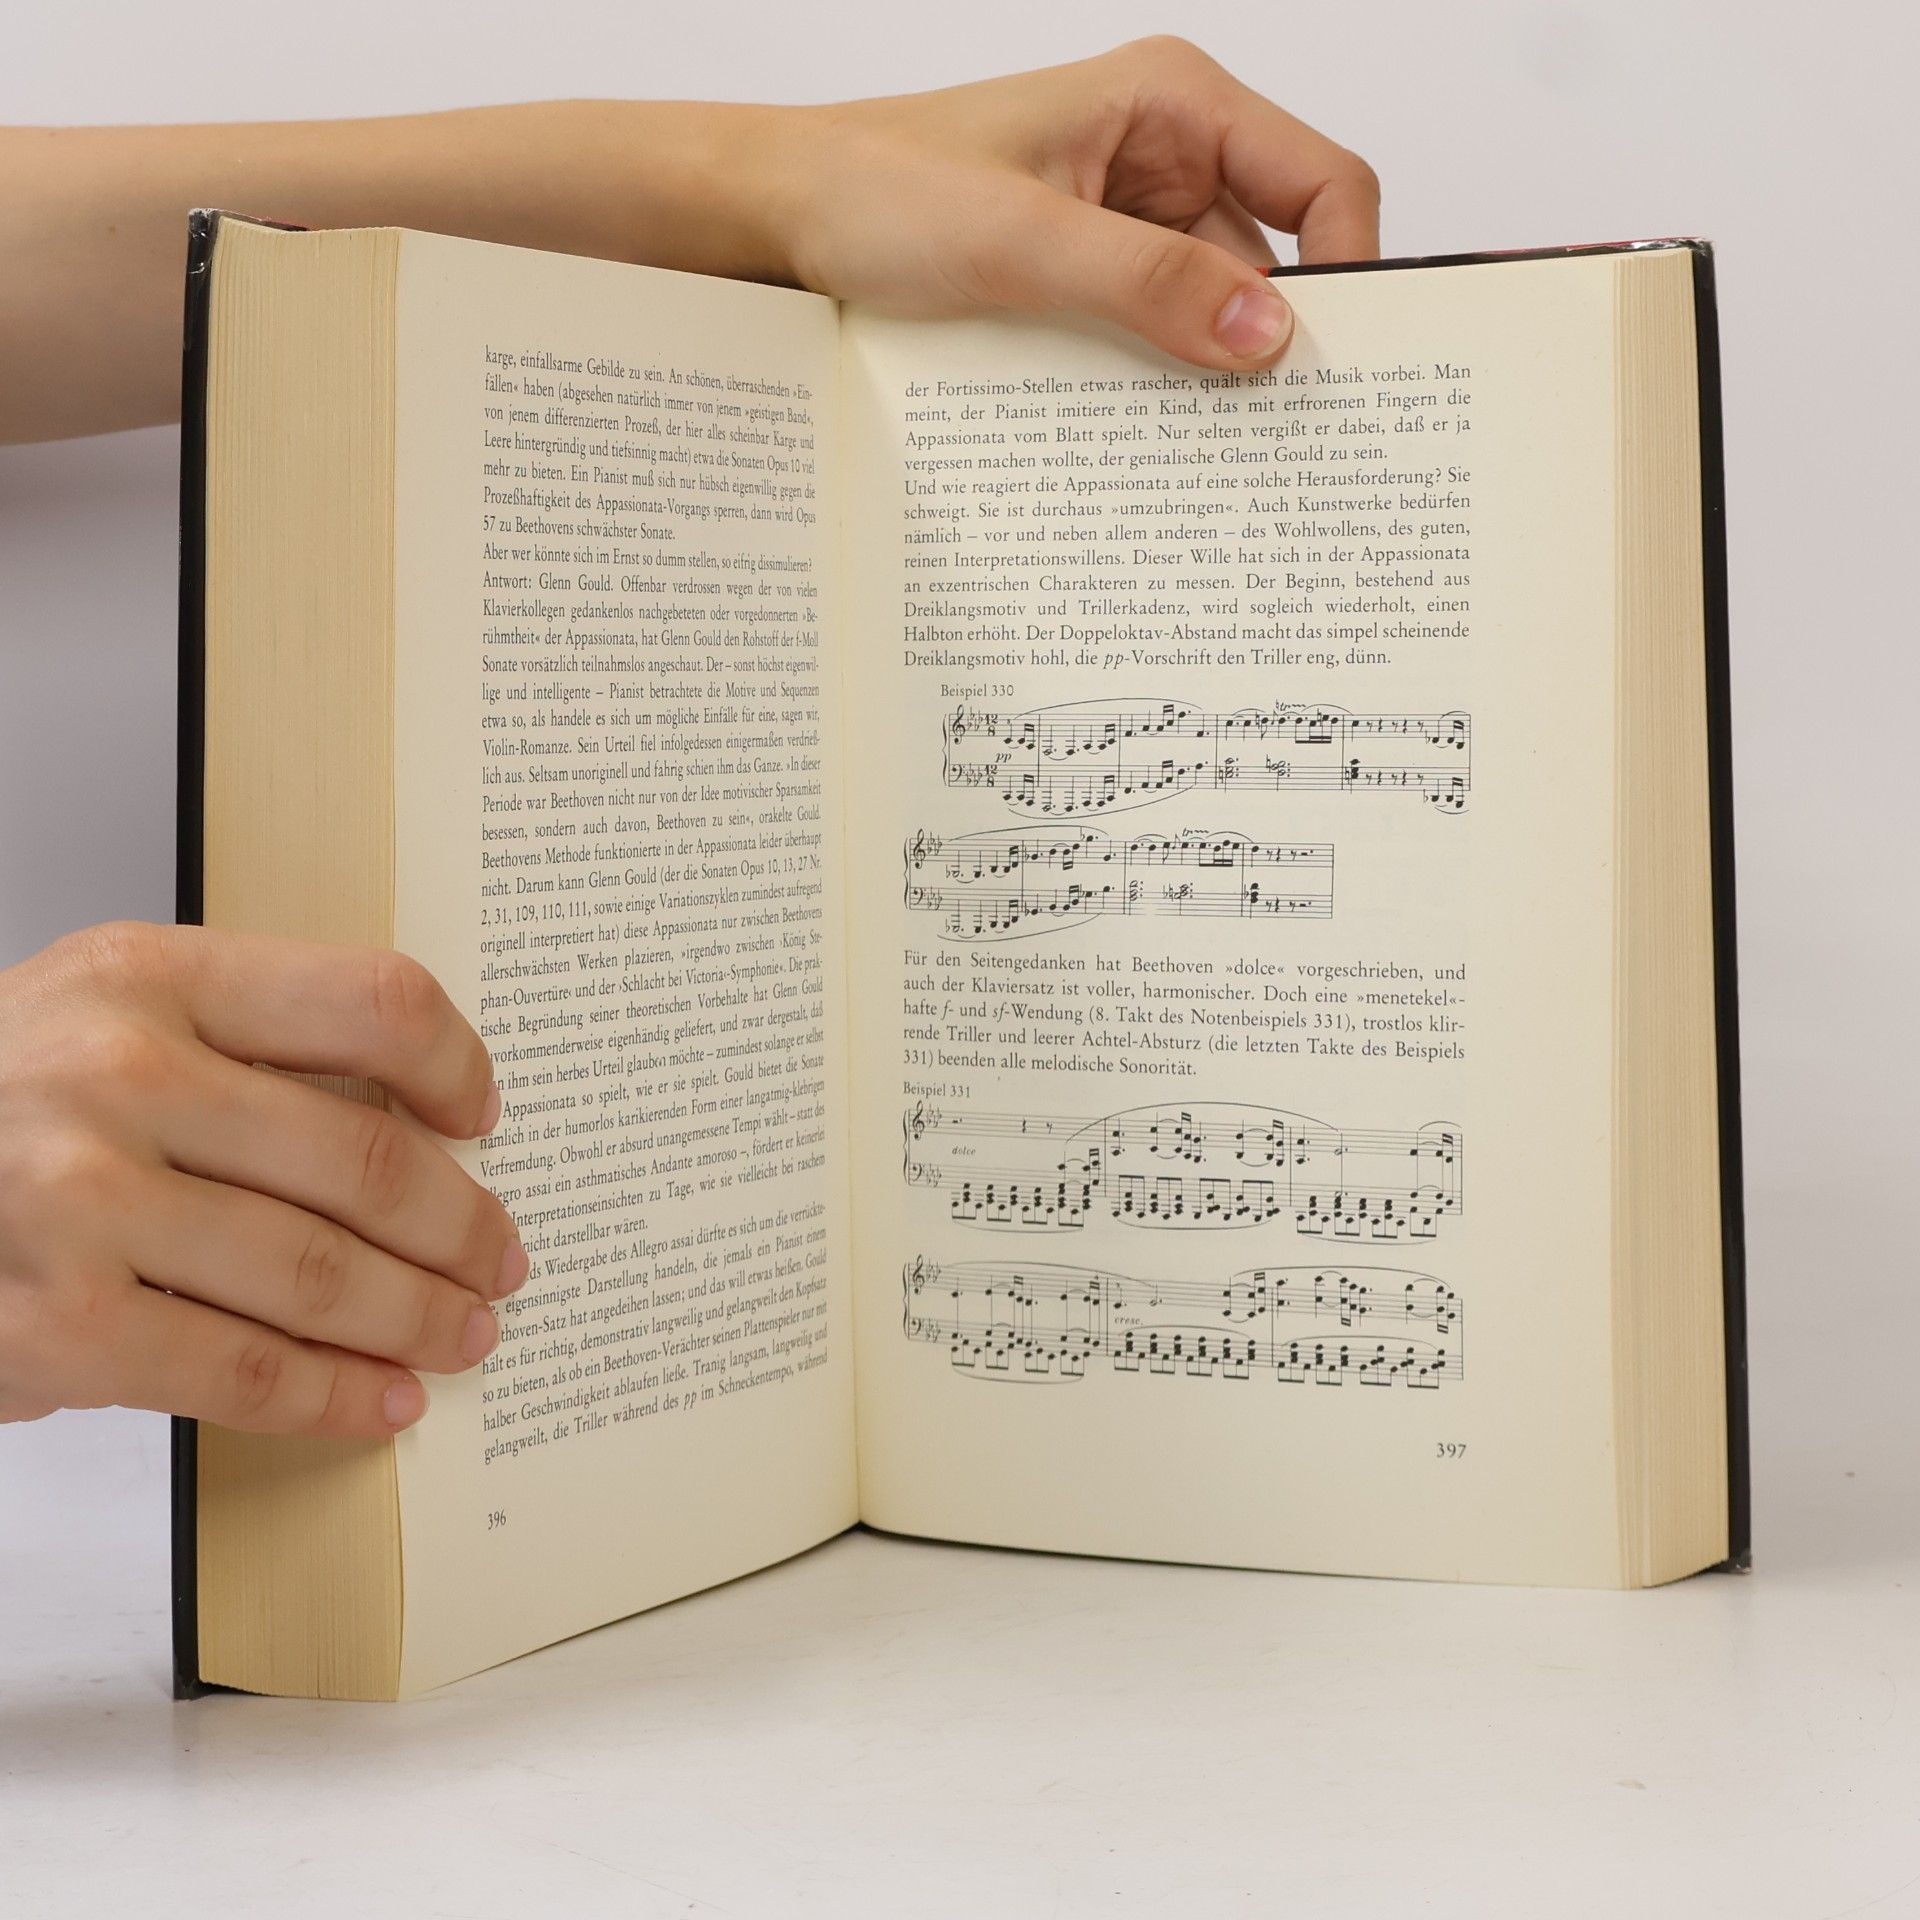 karge, einfallsarme Gebilde zu sein. An schönen, überraschenden »Ein-
fällen« haben (abgesehen natürlich immer von jenem »geistigen Band«,
von jenem differenzierten Prozeß, der hier alles scheinbar Karge und
Leere hintergründig und tiefsinnig macht) etwa die Sonaten Opus 10 viel
mehr zu bieten. Ein Pianist muß sich nur hübsch eigenwillig gegen die
Prozeßhaftigkeit des Appassionata-Vorgangs sperren, dann wird Opus
57 zu Beethovens schwächster Sonate.
Aber wer könnte sich im Ernst so dumm stellen, so eifrig dissimulieren?
Antwort: Glenn Gould. Offenbar verdrossen wegen der von vielen
Klavierkollegen gedankenlos nachgebeteten oder vorgedonnerten »Be-
rühmtheit« der Appassionata, hat Glenn Gould den Rohstoff der f-Moll
Sonate vorsätzlich teilnahmslos angeschaut. Der – sonst höchst eigenwil-
lige und intelligente – Pianist betrachtete die Motive und Sequenzen
etwa so, als handele es sich um mögliche Einfälle für eine, sagen wir,
Violin-Romanze. Sein Urteil fiel infolgedessen einigermaßen verdrieß-
lich aus. Seltsam unoriginell und fahrig schien ihm das Ganze. »In dieser
Periode war Beethoven nicht nur von der Idee motivischer Sparsamkeit
besessen, sondern auch davon, Beethoven zu sein«, orakelte Gould.
Beethovens Methode funktionierte in der Appassionata leider überhaupt
nicht. Darum kann Glenn Gould (der die Sonaten Opus 10, 13, 27 Nr.
2, 31, 109, 110, 111, sowie einige Variationszyklen zumindest aufregend
originell interpretiert hat) diese Appassionata nur zwischen Beethovens
allerschwächsten Werken plazieren, »irgendwo zwischen ›König Ste-
phan-Ouvertüre‹ und der ›Schlacht bei Victoria‹-Symphonie«. Die prak-
tische Begründung seiner theoretischen Vorbehalte hat Glenn Gould
vorkommenderweise eigenhändig geliefert, und zwar dergestalt, daß
n ihm sein herbes Urteil glauben möchte – zumindest solange er selbst
Appassionata so spielt, wie er sie spielt. Gould bietet die Sonate
nämlich in der humorlos karikierenden Form einer langatmig-klebrigen
Verfremdung. Obwohl er absurd unangemessene Tempi wählt – statt des
llegro assai ein asthmatisches Andante amoroso –, fördert er keinerlei
Interpretationseinsichten zu Tage, wie sie vielleicht bei raschem
nicht darstellbar wären.
ds Wiedergabe des Allegro assai dürfte es sich um die verrückte-
, eigensinnigste Darstellung handeln, die jemals ein Pianist einem
thoven-Satz hat angedeihen lassen; und das will etwas heißen. Gould
hält es für richtig, demonstrativ langweilig und gelangweilt den Kopfsatz
so zu bieten, als ob ein Beethoven-Verächter seinen Plattenspieler nur mit
halber Geschwindigkeit ablaufen ließe. Tranig langsam, langweilig und
gelangweilt, die Triller während des pp im Schneckentempo, während
396
der Fortissimo-Stellen etwas rascher, quält sich die Musik vorbei. Man
meint, der Pianist imitiere ein Kind, das mit erfrorenen Fingern die
Appassionata vom Blatt spielt. Nur selten vergißt er dabei, daß er ja
vergessen machen wollte, der genialische Glenn Gould zu sein.
Und wie reagiert die Appassionata auf eine solche Herausforderung? Sie
schweigt. Sie ist durchaus »umzubringen«. Auch Kunstwerke bedürfen
nämlich – vor und neben allem anderen – des Wohlwollens, des guten,
reinen Interpretationswillens. Dieser Wille hat sich in der Appassionata
an exzentrischen Charakteren zu messen. Der Beginn, bestehend aus
Dreiklangsmotiv und Trillerkadenz, wird sogleich wiederholt, einen
Halbton erhöht. Der Doppeloktav-Abstand macht das simpel scheinende
Dreiklangsmotiv hohl, die pp-Vorschrift den Triller eng, dünn.
Beispiel 330
12 8
pp
12 8
Für den Seitengedanken hat Beethoven »dolce« vorgeschrieben, und
auch der Klaviersatz ist voller, harmonischer. Doch eine »menetekel«-
hafte f- und sf-Wendung (8. Takt des Notenbeispiels 331), trostlos klir-
rende Triller und leerer Achtel-Absturz (die letzten Takte des Beispiels
331) beenden alle melodische Sonorität.
Beispiel 331
dolce
cresc.
397